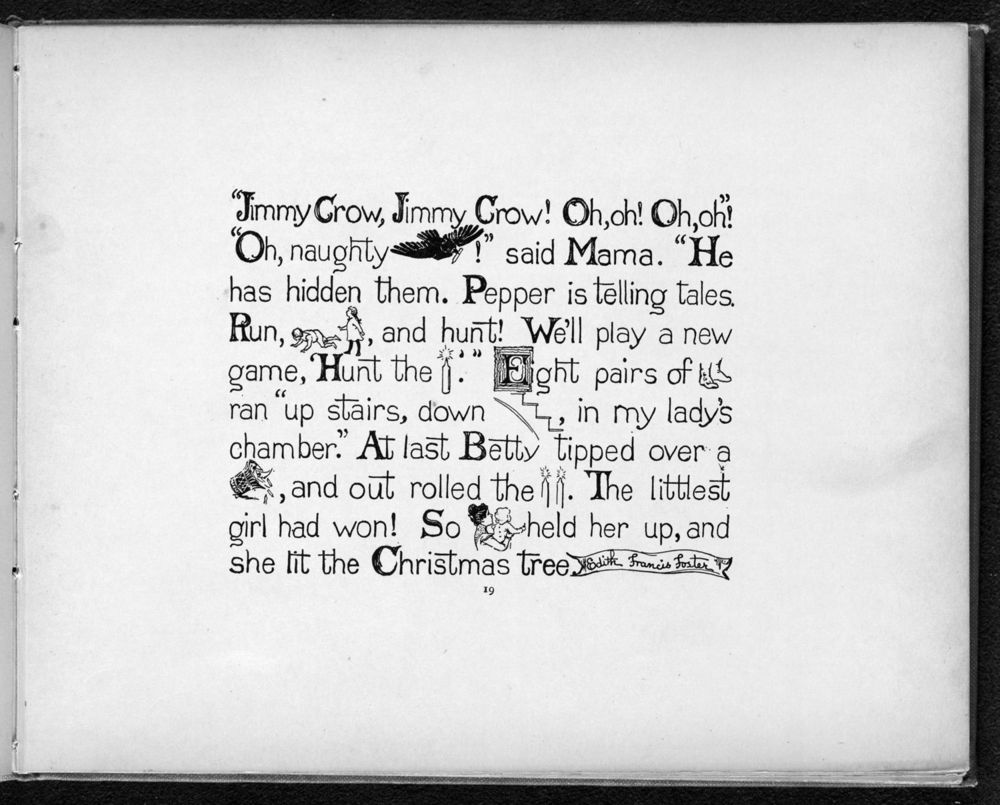 "Jimmy Crow, Jimmy Crow! Oh, oh! Oh, oh"!
"Oh, naughty !" said Mama. "He
has hidden them. Pepper is telling tales.
Run, , and hunt! We'll play a new
game, 'Hunt the .'" Eight pairs of
ran "up stairs, down , in my lady's
chamber." At last Betty tipped over a
, and out rolled the . The littlest
girl had won! So held her up, and
she lit the Christmas tree.
Edith Francis Foster
19